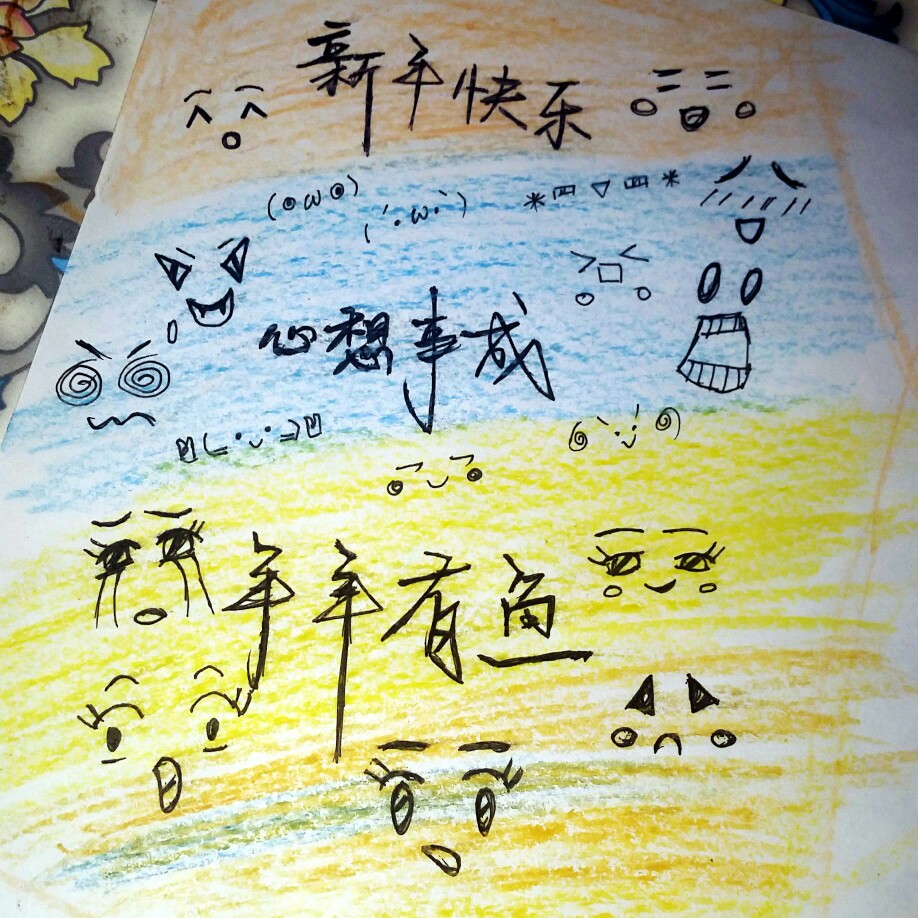 新年快乐
心想事成
年年有鱼